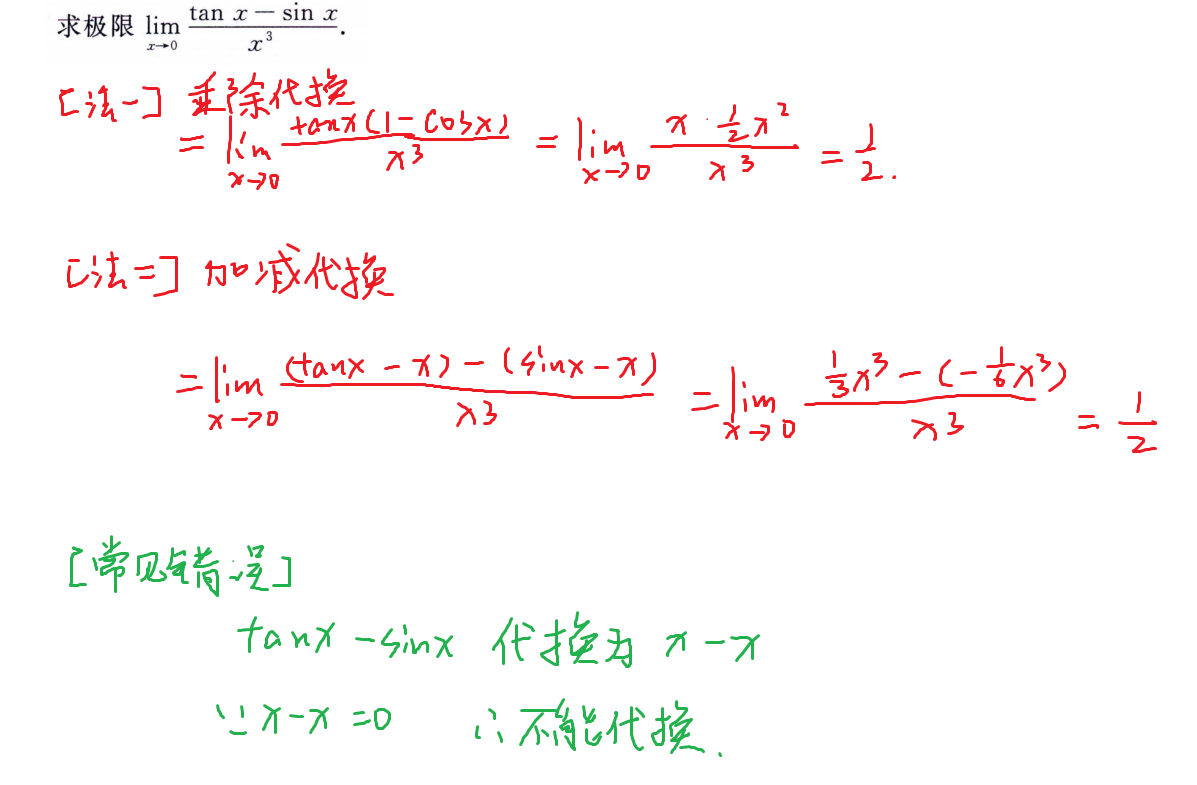 求极限 lim_{x→0} (tan x − sin x)/x³.
[法一] 乘除代换
= lim_{x→0} tanx(1−cosx)/x³ = lim_{x→0} (x·½x²)/x³ = 1/2.
[法二] 加减代换
= lim_{x→0} ((tanx − x) − (sinx − x))/x³ = lim_{x→0} (⅓x³ − (−⅙x³))/x³ = 1/2
[常见错误]
tanx − sinx 代换为 x − x
∵ x − x = 0 ∴ 不能代换.